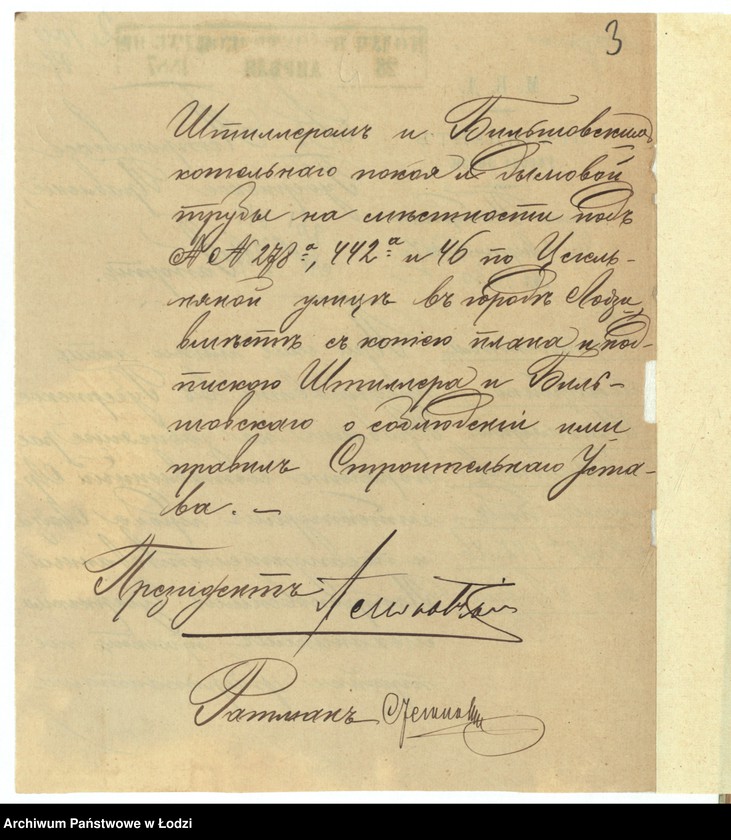 3
Штиллеромъ и Бильшовскимъ
котельнаго покоя и дымовой
трубы на мѣстности подъ
№№ 278ª, 442ª и 46 по Цегель-
няной улицѣ въ городѣ Лодзи,
вмѣстѣ съ копіею плана и под-
пискою Штиллера и Биль-
шовскаго о соблюденіи ими
правилъ Строительнаго Уста-
ва. —
Президентъ
Ратманъ
Archiwum Państwowe w Łodzi